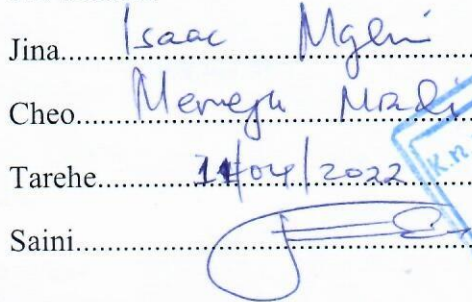 Jina.......... Isaac Mgeni
Cheo.......... Meneja Mradi
Tarehe.......... 11/04/2022
Saini..........